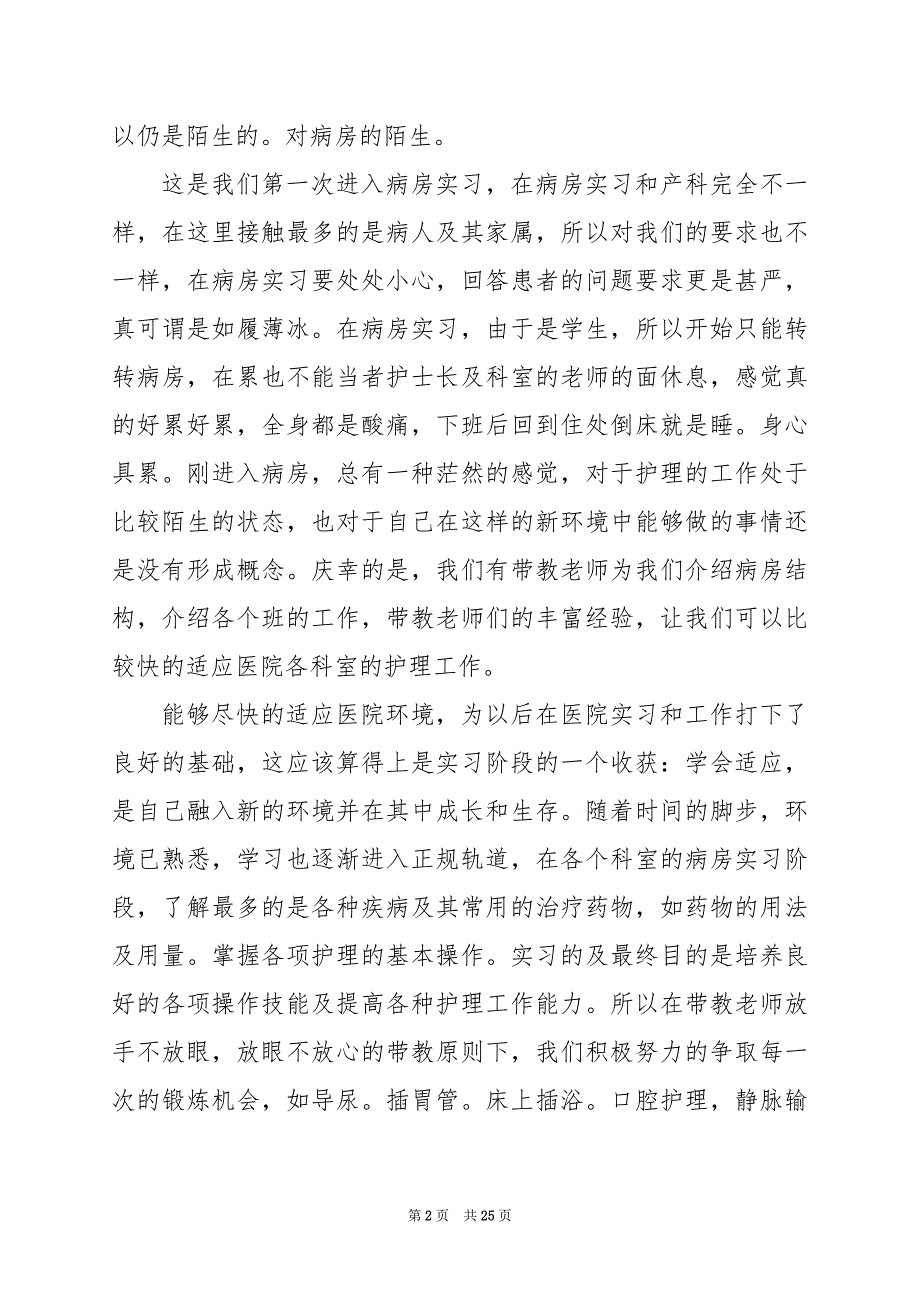 以仍是陌生的。对病房的陌生。
这是我们第一次进入病房实习，在病房实习和产科完全不一
样，在这里接触最多的是病人及其家属，所以对我们的要求也不
一样，在病房实习要处处小心，回答患者的问题要求更是甚严，
真可谓是如履薄冰。在病房实习，由于是学生，所以开始只能转
转病房，在累也不能当者护士长及科室的老师的面休息，感觉真
的好累好累，全身都是酸痛，下班后回到住处倒床就是睡。身心
具累。刚进入病房，总有一种茫然的感觉，对于护理的工作处于
比较陌生的状态，也对于自己在这样的新环境中能够做的事情还
是没有形成概念。庆幸的是，我们有带教老师为我们介绍病房结
构，介绍各个班的工作，带教老师们的丰富经验，让我们可以比
较快的适应医院各科室的护理工作。
能够尽快的适应医院环境，为以后在医院实习和工作打下了
良好的基础，这应该算得上是实习阶段的一个收获：学会适应，
是自己融入新的环境并在其中成长和生存。随着时间的脚步，环
境已熟悉，学习也逐渐进入正规轨道，在各个科室的病房实习阶
段，了解最多的是各种疾病及其常用的治疗药物，如药物的用法
及用量。掌握各项护理的基本操作。实习的及最终目的是培养良
好的各项操作技能及提高各种护理工作能力。所以在带教老师放
手不放眼，放眼不放心的带教原则下，我们积极努力的争取每一
次的锻炼机会，如导尿。插胃管。床上插浴。口腔护理，静脉输
第 2 页 共 25 页